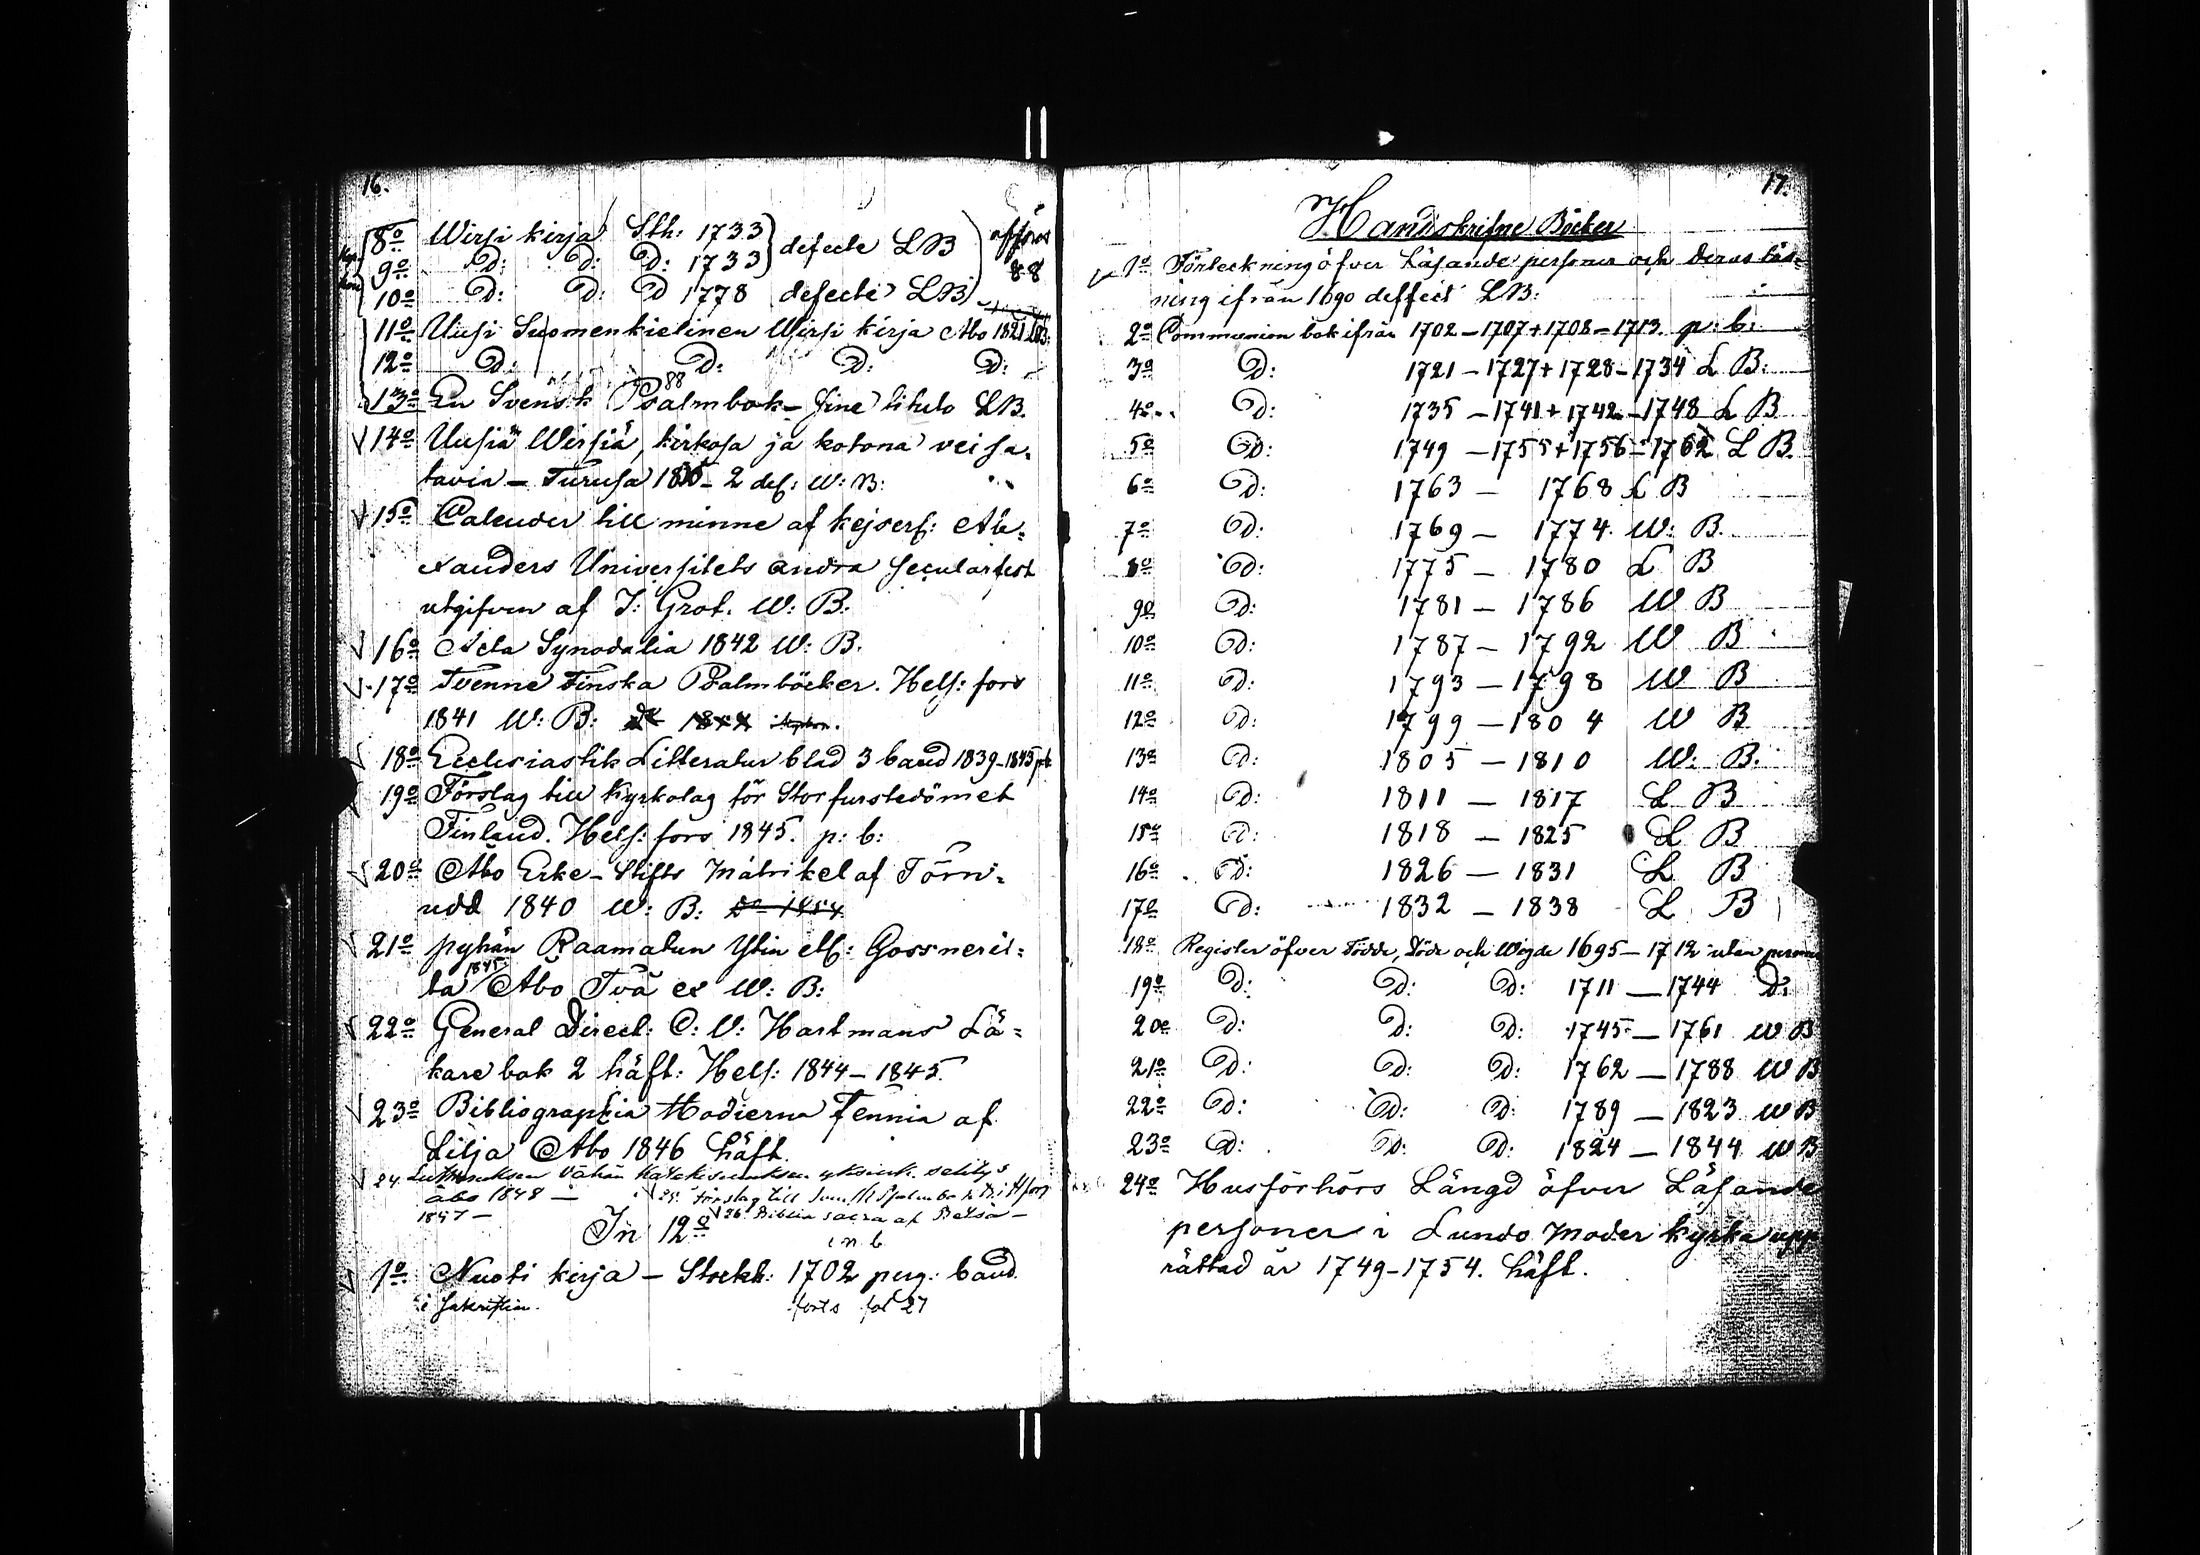 16.
8o Wirsi kirja Sth: 1733 defecte LB afföres
9o D: D: D: 1733 88
10o D: D: D 1778 defecte LB
11o Uusi Suomenkielinen Wirsi kirja Abo
12o D: D: D: D:
13o En Svensk Psalmbok – sine titulo LB.
88
14o Uusia Wirsiä, kirkosa ja kotona veisa=
tavia – Turusa 2 def: W: B:
15o Calender till minne af kejserl: Ale=
xanders Universitets andra secularfest
utgifven af J: Grot. W: B.
16o Acta Synodalia 1842 W: B.
17o Tvenne Finska Psalmböcker. Hels: fors
1841 W: B:
18o Ecclesiastik Litteratur blad 3 band 1839–1845 pb
19o Förslag till Kyrkolag för Storfurstedömet
Finland. Hels: fors 1845. p: b:
20o Abo Erke-Stifts Matrikel af Törn=
udd 1840 W: B: Do 1854
21o pyhän Raamatun Ystin ell: Gossneril=
ta 1845 Abo Två ex W: B:
22o General Direct: C: D: Hartmans Lä=
kare bok 2 häft: Hels: 1844–1845.
23o Bibliographia Hodierna Fennia af
Lilja Abo 1846 häft.
24. Lutheruksen Vähän Katekismuksen yksink. selitys
åbo 1848 – 25. Förslag till Psalmbok H:fors
1857 – 26. Biblia sacra af Betsia –
In 12o i n. b.
1o Nuoti kirja – Stockh: 1702 perg: band.
i sakristian. forts fol 27
17.
Handskrifne Böcker
1o Förteckning öfver Läsande personer och deras läs=
ning ifrån 1690 deffect LB:
2o Communion bok ifrån 1702–1707+1708–1713. p: b:
3o D: 1721–1727+1728–1734 L B:
4o D: 1735–1741+1742–1748 L B
5o D: 1749–1755+1756–1762 L B.
6o D: 1763 – 1768 L B
7o D: 1769 – 1774. W: B.
8o D: 1775 – 1780 L B
9o D: 1781 – 1786 W B
10o D: 1787 – 1792 W B
11o D: 1793 – 1798 W B
12o D: 1799 – 1804 W B
13o D: 1805 – 1810 W: B.
14o D: 1811 – 1817 L B
15o D: 1818 – 1825 L B
16o D: 1826 – 1831 L B
17o D: 1832 – 1838 L B
18o Register öfver Födde, Döde och Wigde 1695–1712 utan
19o D: D: D: 1711 – 1744 D:
20o D: D: D: 1745 – 1761 W B
21o D: D: D: 1762 – 1788 W B
22o D: D: D: 1789 – 1823 W B
23o D: D: D: 1824 – 1844 W B
24o Husförhörs Längd öfver Läsande
personer i Lundo Moder kyrka upp
rättad år 1749–1754. häft.